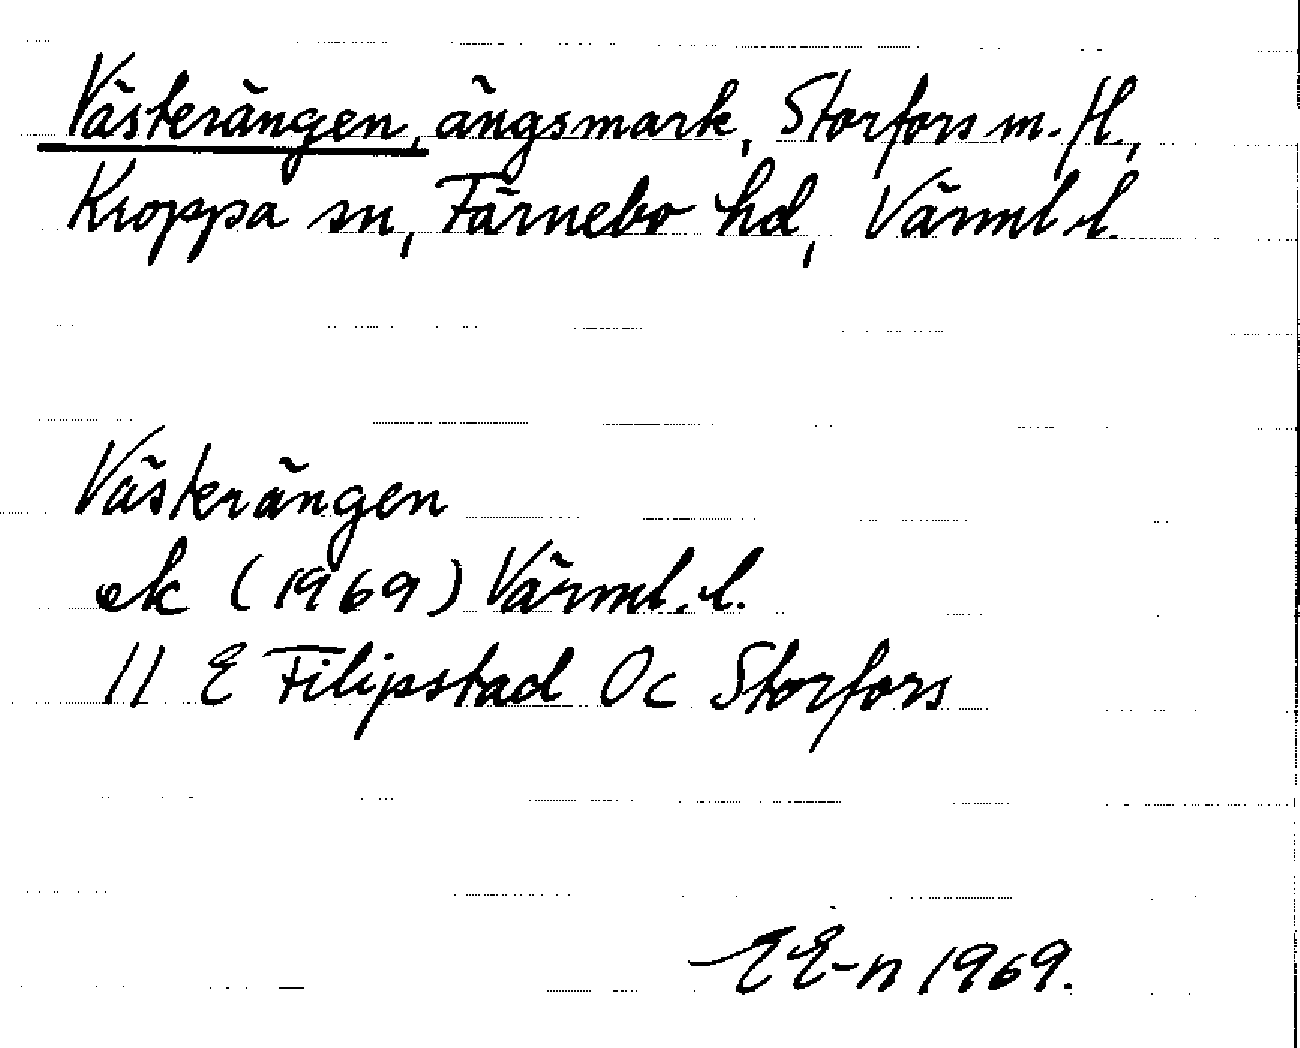 Västerängen, ängsmark, Storfors m. fl.,
Kroppa sn, Färnebo hd, Värml l.
Västerängen
ek (1969) Värml. l.
11 E Filipstad 0c Storfors
EE-n 1969.